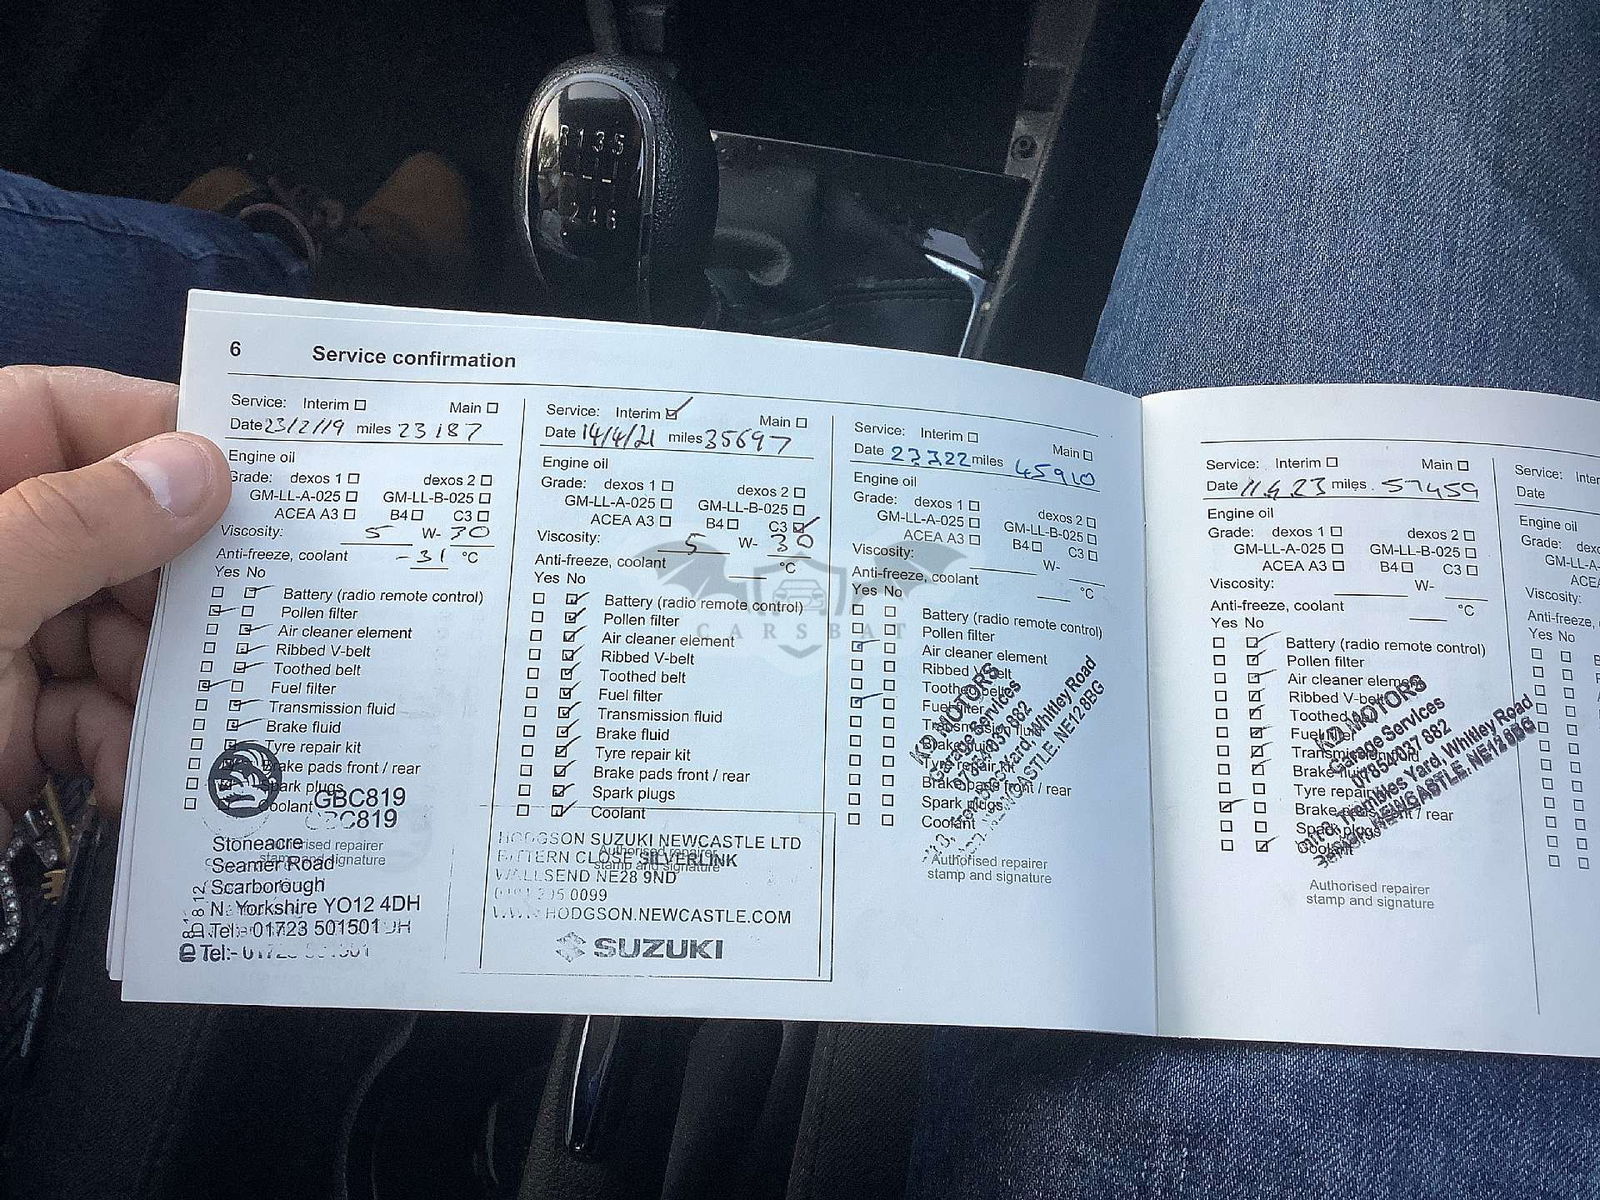 R 1 3 5
2 4 6
6 Service confirmation
Service: Interim Main
Date 23/2/19 miles 23187
Engine oil
Grade: dexos 1 dexos 2
GM-LL-A-025 GM-LL-B-025
ACEA A3 B4 C3
Viscosity: 5 W- 30
Anti-freeze, coolant -31 °C
Yes No
Battery (radio remote control)
Pollen filter
Air cleaner element
Ribbed V-belt
Toothed belt
Fuel filter
Transmission fluid
Brake fluid
Tyre repair kit
Brake pads front / rear
Spark plugs
Coolant
GBC819
GBC819
Authorised repairer
stamp and signature
Stoneacre
Seamer Road
Scarborough
N. Yorkshire YO12 4DH
Tel:- 01723 501501
Tel:-
Service: Interim Main
Date 14/4/21 miles 35697
Engine oil
Grade: dexos 1 dexos 2
GM-LL-A-025 GM-LL-B-025
ACEA A3 B4 C3
Viscosity: 5 W- 30
Anti-freeze, coolant °C
Yes No
Battery (radio remote control)
Pollen filter
Air cleaner element
Ribbed V-belt
Toothed belt
Fuel filter
Transmission fluid
Brake fluid
Tyre repair kit
Brake pads front / rear
Spark plugs
Coolant
HODGSON SUZUKI NEWCASTLE LTD
BITTERN CLOSE SILVERLINK
Authorised repairer
stamp and signature
WALLSEND NE28 9ND
0099
WWW.HODGSON.NEWCASTLE.COM
SUZUKI
CARSBAT
Service: Interim Main
Date 23322 miles 45910
Engine oil
Grade: dexos 1 dexos 2
GM-LL-A-025 GM-LL-B-025
ACEA A3 B4 C3
Viscosity: W-
Anti-freeze, coolant °C
Yes No
Battery (radio remote control)
Pollen filter
Air cleaner element
Ribbed V-belt
Toothed belt
Fuel filter
Transmission fluid
Brake fluid
Tyre repair kit
Brake pads front / rear
Spark plugs
Coolant
KD MOTORS
Garage Services
07854 037 882
Yard, Whitley Road
NEWCASTLE. NE12 8BG
Authorised repairer
stamp and signature
Service: Interim Main
Date 11.4.23 miles 57459
Engine oil
Grade: dexos 1 dexos 2
GM-LL-A-025 GM-LL-B-025
ACEA A3 B4 C3
Viscosity: W-
Anti-freeze, coolant °C
Yes No
Battery (radio remote control)
Pollen filter
Air cleaner element
Ribbed V-belt
Toothed
Fuel
Brake
Tyre repair
Brake / rear
Spark plugs
Coolant
KD MOTORS
Garage Services
07854 037 882
Trembles Yard, Whitley Road
Benton, NEWCASTLE. NE12 8BG
Authorised repairer
stamp and signature
Service:
Date
Engine oil
Grade:
Viscosity:
Anti-freeze,
Yes No